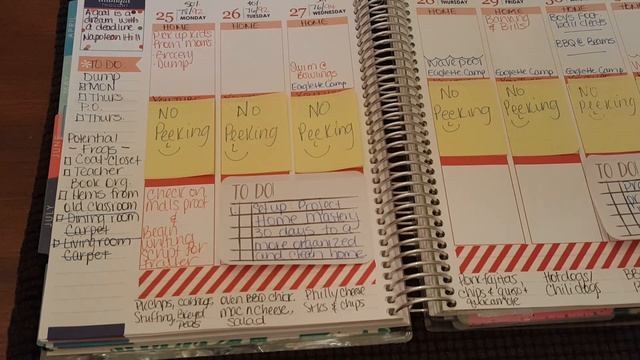 A goal is a
dream with
a deadline
Napoleon Hill
*TO DO
Dump
MON
Thurs
P.O.
Thurs.
Potential
- Frogs -
Coat Closet
Teacher
Book Org.
Items from
old classroom
Dining room
Carpet
Living room
Carpet
JUN
JULY
25 MONDAY
HOME
Pick up kids
from mom's
Grocery
Dump
NO
Peeking
Check on
mail's proof
&
Begin
writing
script for
trailer
P. Chops,
Stuffing,
Peas
26
TUESDAY
HOME
NO
Peeking
TO DO!
Set up Project
Home Mastery
30 days to a
more organized
and clean home
oven BBQ chix,
mac n cheese,
salad
27
WEDNESDAY
HOME
Swim @
Bowlings
Eaglette Camp
NO
Peeking
Philly cheese
stks & chips
28 THURSDAY
HOME
Wavepool
Eaglette Camp
No
Peeking
chips & queso &
29 FRIDAY
HOME
Banking
& Bills
Eaglette Camp
No
Peeking
Hotdogs/
Chili dogs
HOME
Boys Foot
ball cleats
BBQ & Beans
Eaglette Camp
No
Peeking
TO DO!